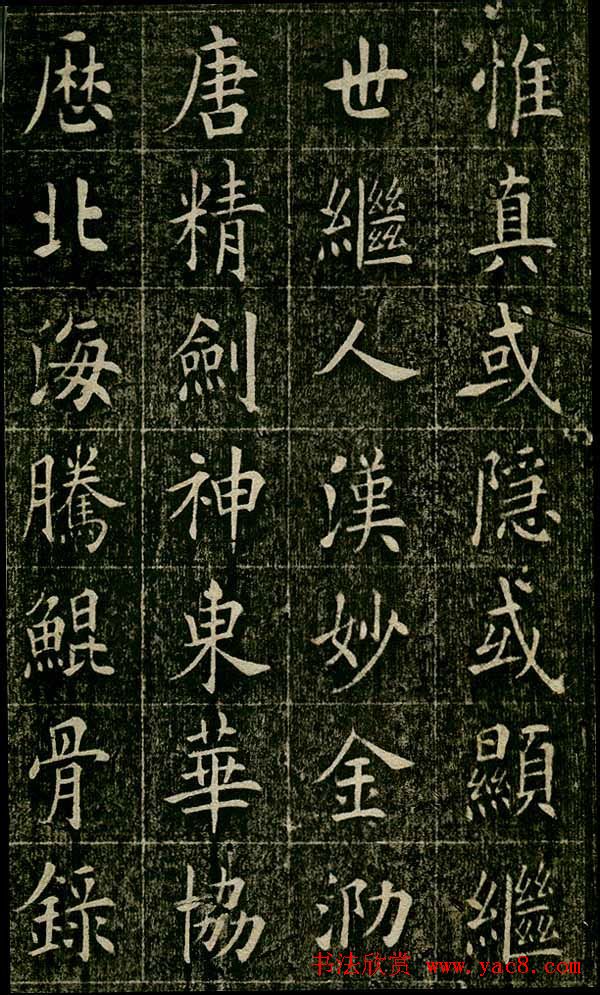 惟真或隱或顯繼
世繼人漢妙金泐
唐精劍神東華協
歴北海騰鯤骨錄
书法欣赏 www.yac8.com